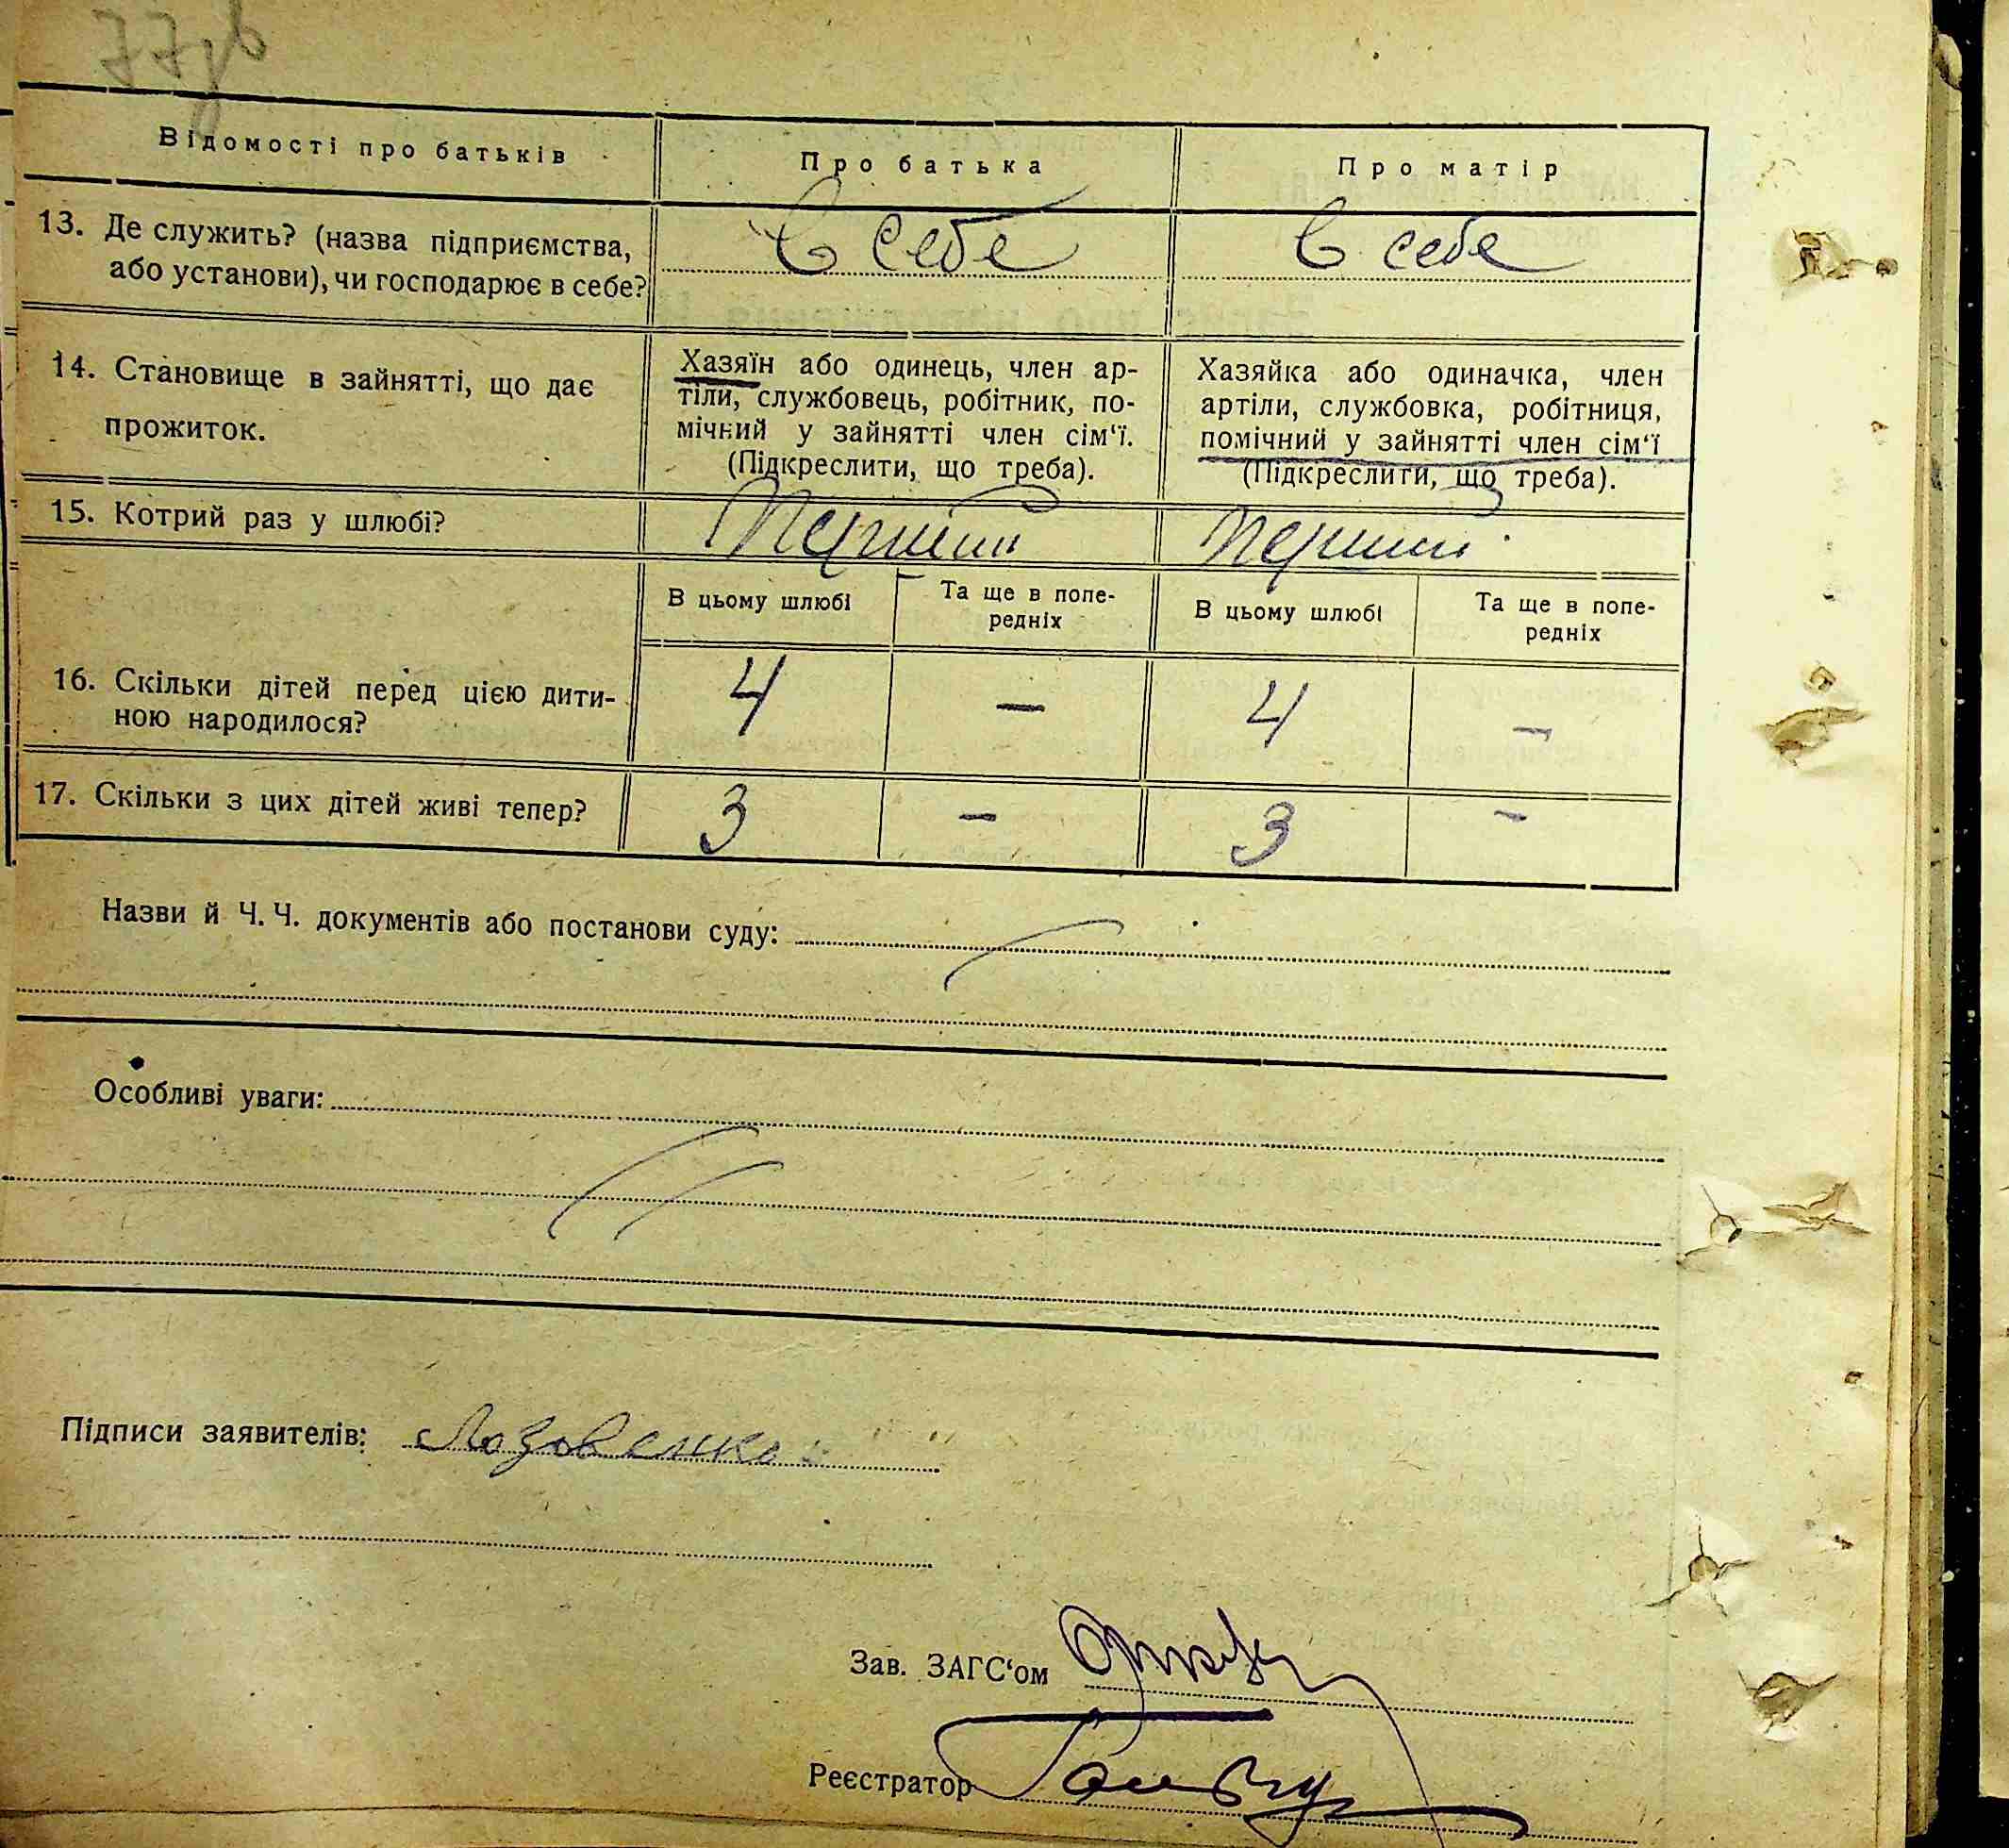 Відомості про батьків Про батька Про матір
13. Де служить? (назва підприємства, в себе в себе
або установи), чи господарює в себе?
14. Становище в зайнятті, що дає Хазяїн або одинець, член ар- Хазяйка або одиначка, член
тіли, службовець, робітник, по- артіли, службовка, робітниця,
прожиток. мічний у зайнятті член сім‘ї. помічний у зайнятті член сім‘ї
(Підкреслити, що треба). (Підкреслити, що треба).
15. Котрий раз у шлюбі? Перший Перший
В цьому шлюбі Та ще в попе- В цьому шлюбі Та ще в попе-
редніх редніх
16. Скільки дітей перед цією дити- 4 — 4 —
ною народилося?
17. Скільки з цих дітей живі тепер? 3 — 3 —
Назви й Ч. Ч. документів або постанови суду:
Особливі уваги:
Підписи заявителів: Лозовенко
Зав. ЗАГС‘ом
Реєстратор